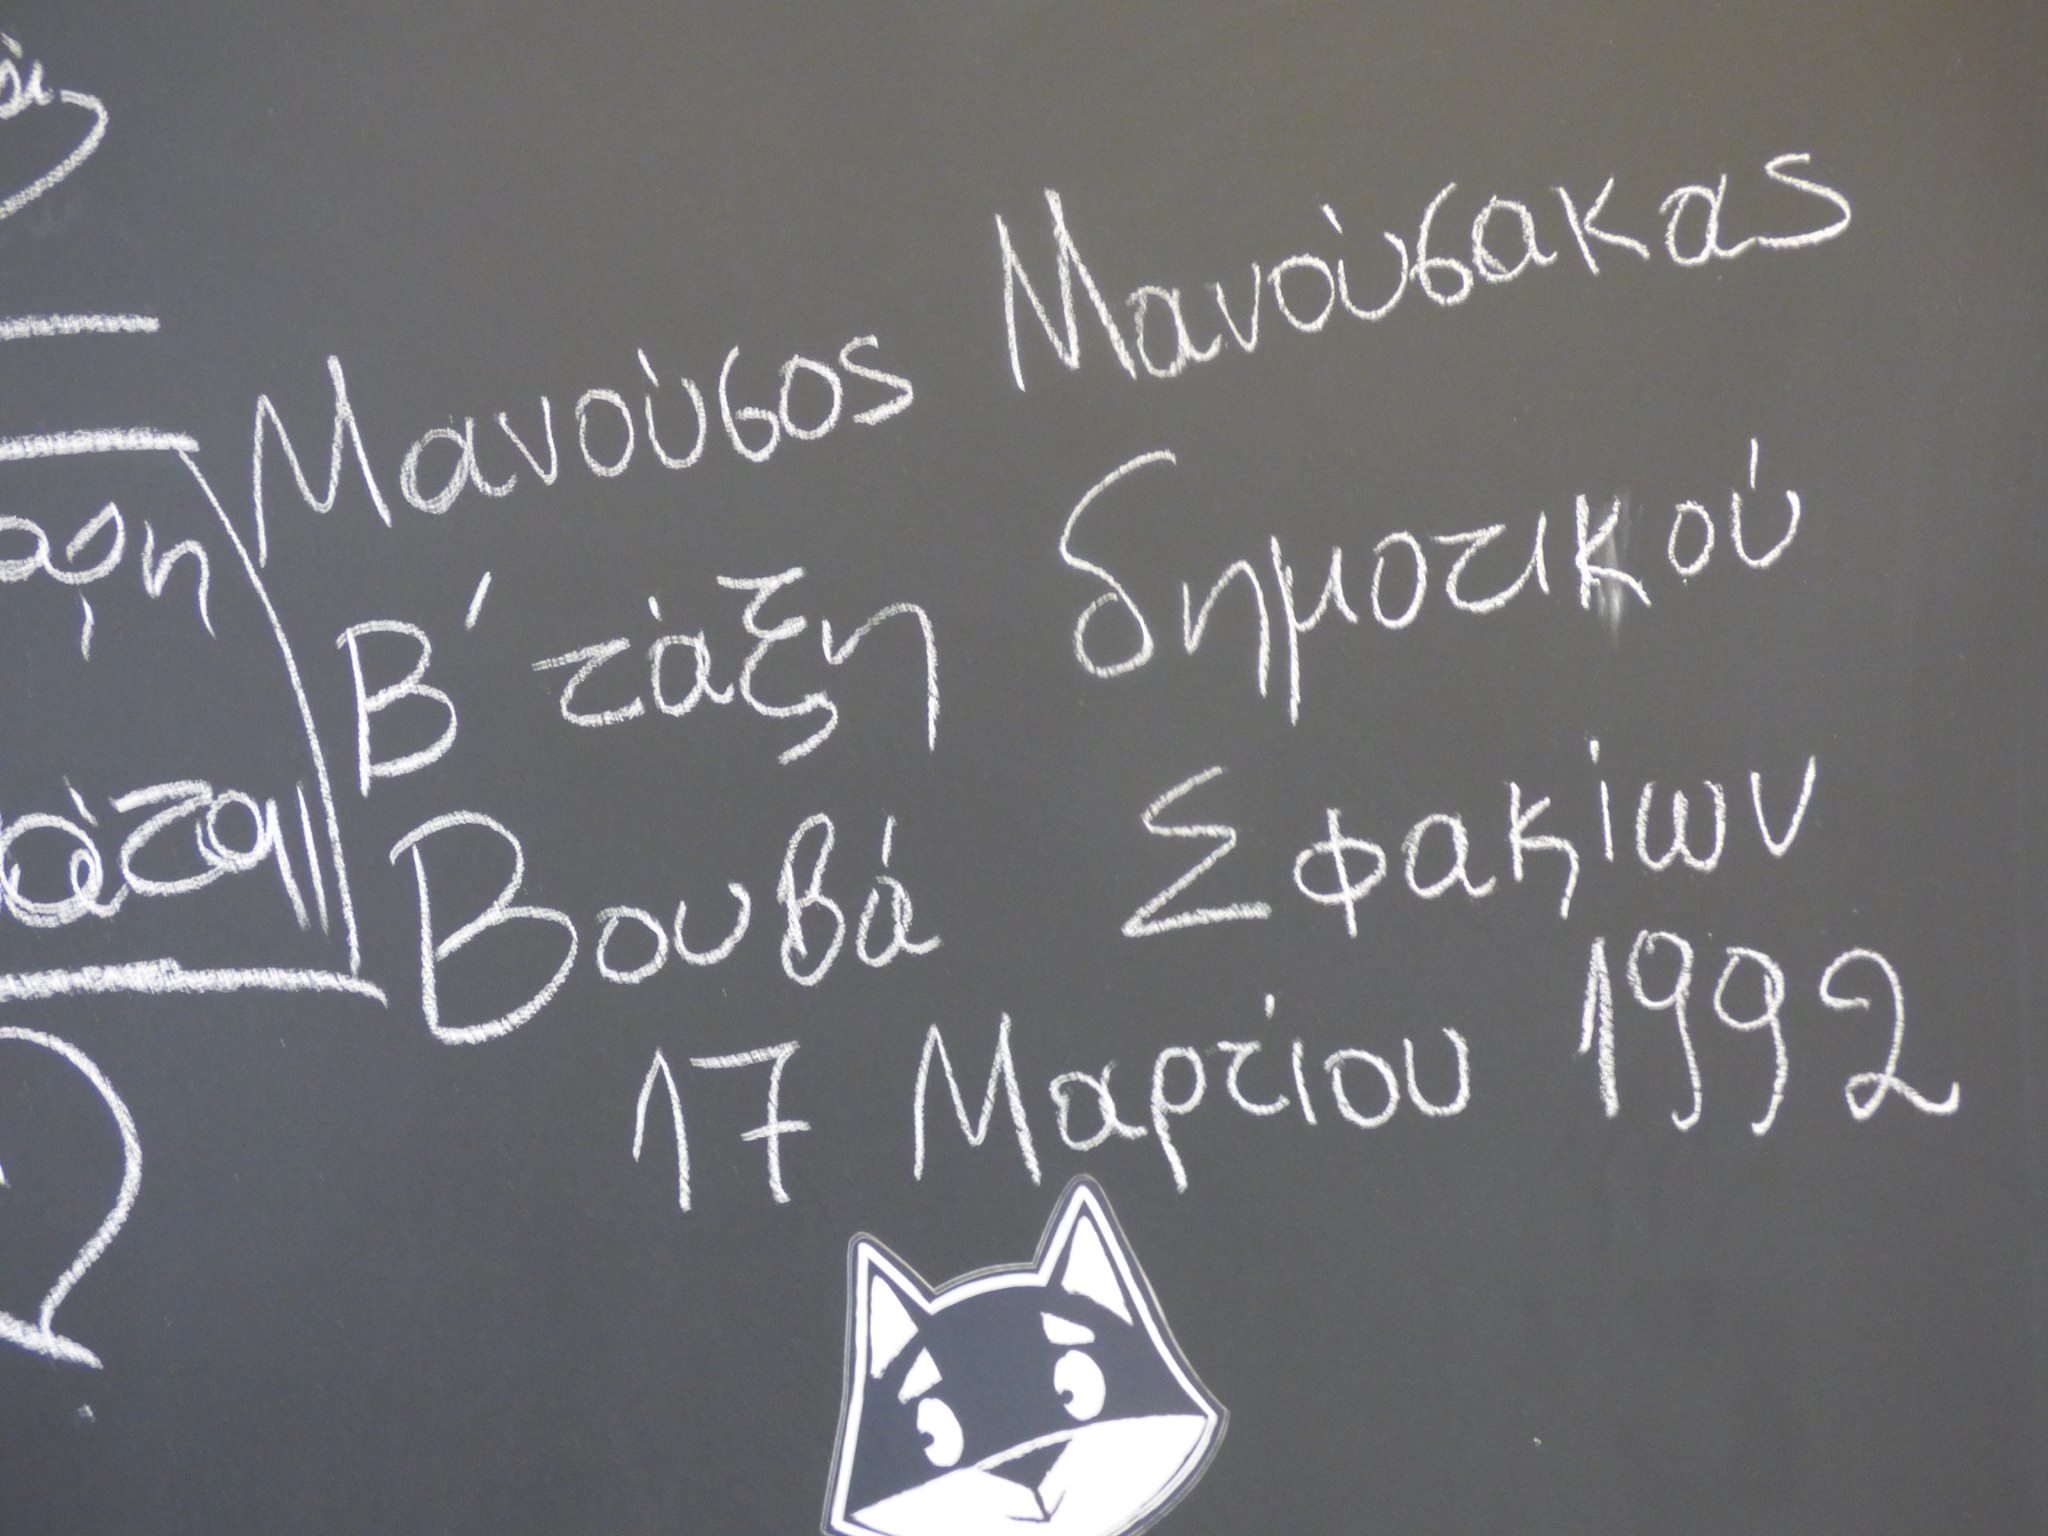 Μανούσος Μανούσακας
Β΄ τάξη δημοτικού
Βουβά Σφακίων
17 Μαρτίου 1992